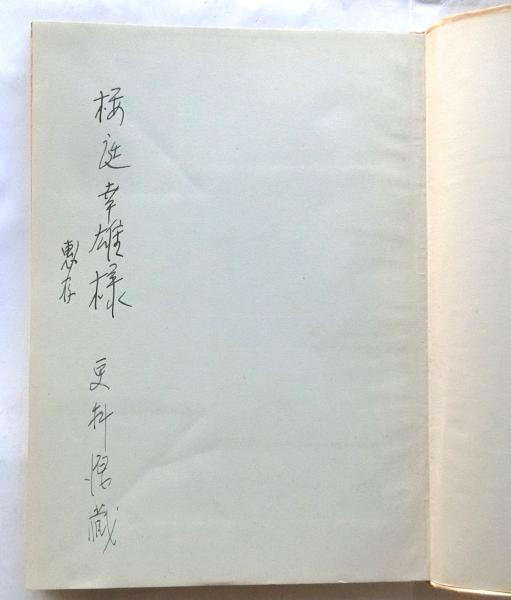 桜庭幸雄様
恵存
更科源蔵